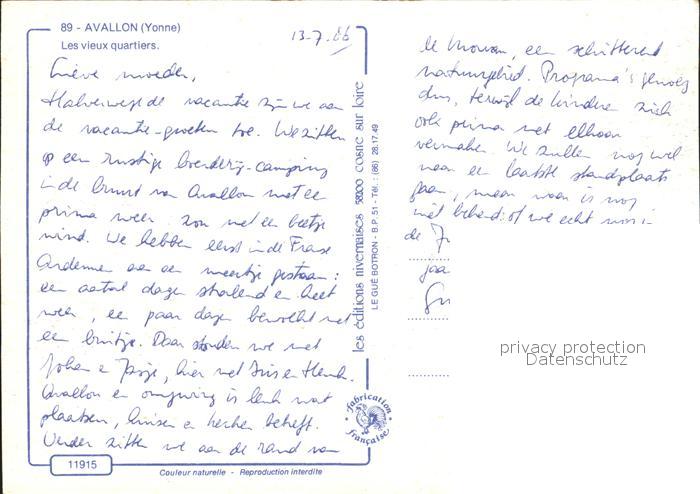 89 - AVALLON (Yonne)
Les vieux quartiers.
13-7.86
Lieve moeder,
Halverwege de vacantie zijn we aan
de vacantie-groeten toe. We zitten
op een rustige boerderij-camping
in de buurt van Avallon met een
prima weer. Zon met een beetje
wind. We hebben eerst in de Franse
Ardennen aan een meertje gestaan:
een aantal dagen stralend en heet
weer, een paar dagen bewolkt met
een buitje. Daar stonden we met
Johan en, hier met Iris en Henk.
Avallon en omgeving is leuk wat
plaatsen, huizen en kerken betreft.
Verder zitten we aan de rand van
le Morvan, een schitterend
natuurgebied. Programma's genoeg
dus, terwijl de kinderen zich
ook prima met elkaar
vermaken. We zullen nog wel
naar een laatste standplaats
gaan, maar waar is nog
niet bekend of we echt
de
jaa
les éditions nivernaises 58200 cosne sur loire
LE GUE BOTRON - B.P. 51 - Tél. : (86) 28.17.49
fabrication française
privacy protection
Datenschutz
11915
Couleur naturelle - Reproduction interdite